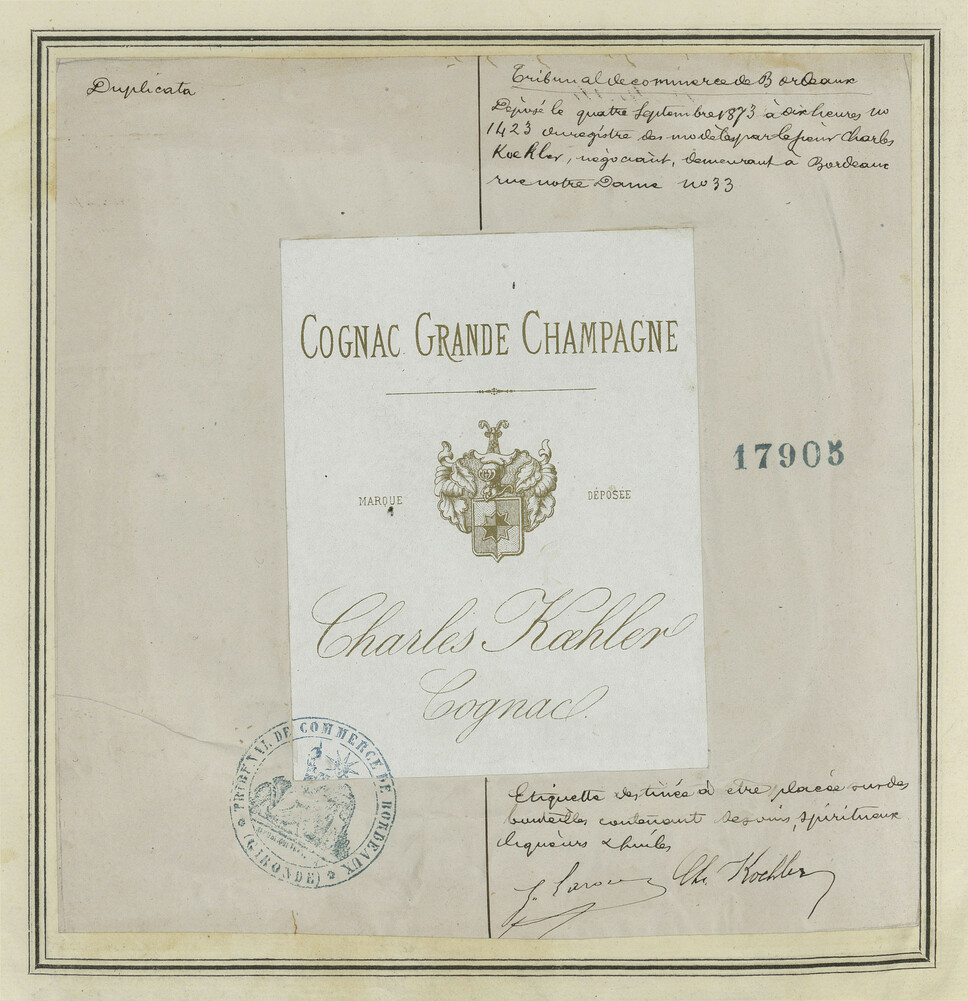 Duplicata
Tribunal de commerce de Bordeaux
Déposé le quatre Septembre 1873 à dix heures no
1423 du registre des modèles par le sieur Charles
Koehler, négociant, demeurant à Bordeaux
rue notre Dame no 33
COGNAC GRANDE CHAMPAGNE
17905
MARQUE DÉPOSÉE
Charles Kœhler
Cognac.
TRIBUNAL DE COMMERCE DE BORDEAUX
(GIRONDE)
Etiquette destinée à etre placée sur des
bouteilles contenant des vins, spiritueux
liqueurs & huiles
Ch. Koehler